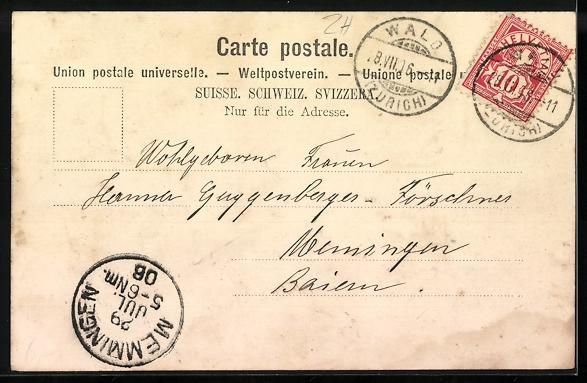 ZH
Carte postale.
Union postale universelle. — Weltpostverein. — Unione postale
SUISSE. SCHWEIZ. SVIZZERA.
Nur für die Adresse.
WALD
(ZÜRICH)
HELVETIA
10
-11
(ZÜRICH)
Wohlgeboren Frauen
Hanna Guggenberger-Förschner
Memingen
Baiern.
MEMMINGEN
29
JUL
5-6Nm.
06